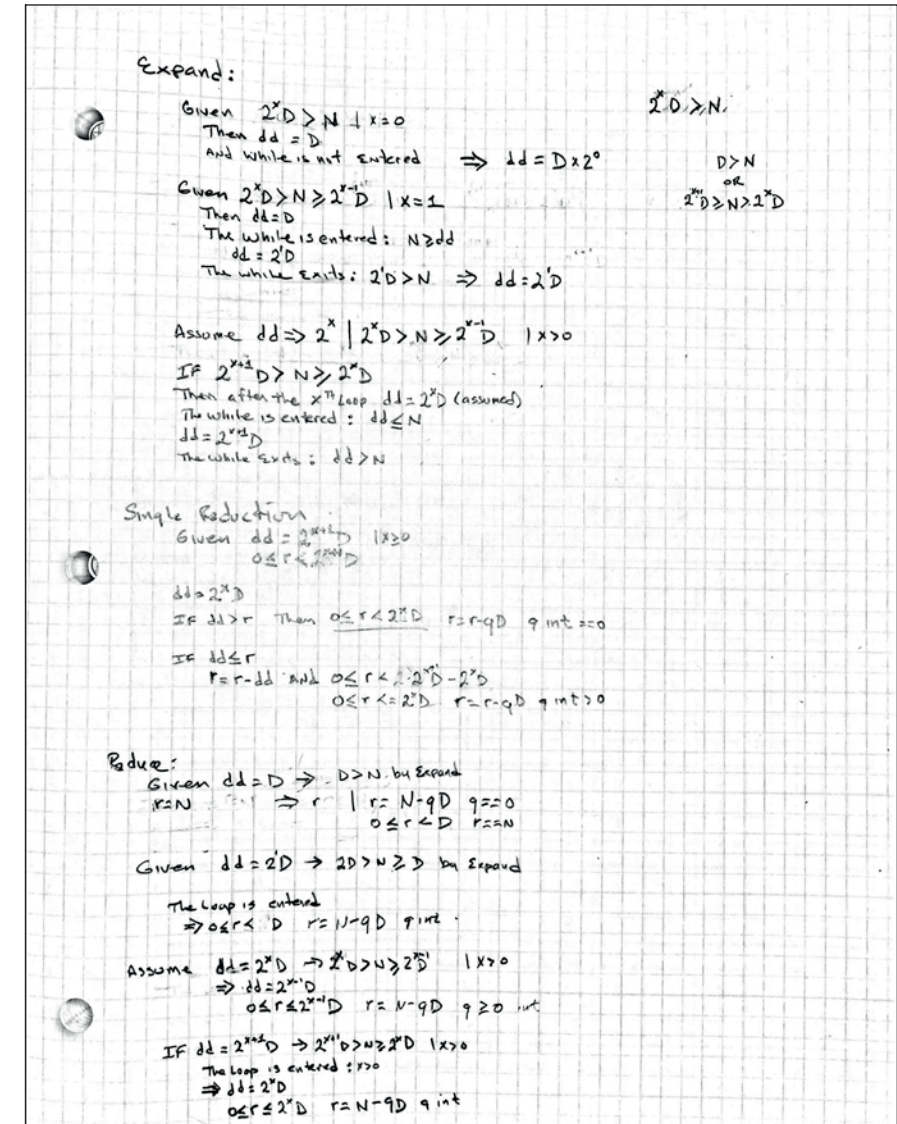 Expand:
Given 2^x D > N | x=0
Then dd = D
And while is not Entered ⇒ dd = D x 2^0
2^x D ≥ N
D > N
OR
2^x+1 D ≥ N > 2^x D
Given 2^x D > N ≥ 2^x-1 D | x=1
Then dd=D
The while is entered: N≥dd
dd = 2^1 D
The while Exits: 2^1 D > N ⇒ dd = 2^1 D
Assume dd ⇒ 2^x | 2^x D > N ≥ 2^x-1 D | x>0
IF 2^x+1 D > N ≥ 2^x D
Then after the x^TH Loop dd = 2^x D (assumed)
The while is entered : dd ≤ N
dd = 2^x+1 D
The while Exits : dd > N
Single Reduction
Given dd = 2^x+1 D | x≥0
0 ≤ r < 2^x+1 D
dd = 2^x D
IF dd > r Then 0 ≤ r < 2^x D r = r-qD q int ==0
IF dd ≤ r
r = r-dd AND 0 ≤ r < 2·2^x D - 2^x D
0 ≤ r <= 2^x D r = r-qD q int > 0
Reduce:
Given dd = D → D > N by Expand
r=N ⇒ r | r = N-qD q==0
0 ≤ r < D r==N
Given dd = 2^1 D → 2D > N ≥ D by Expand
The Loop is entered
⇒ 0 ≤ r < D r = N-qD q int
Assume dd = 2^x D → 2^x D > N ≥ 2^x-1 D | x>0
⇒ dd = 2^x-1 D
0 ≤ r ≤ 2^x-1 D r = N-qD q ≥ 0 int
IF dd = 2^x+1 D → 2^x+1 D > N ≥ 2^x D | x>0
The Loop is entered : x>0
⇒ dd = 2^x D
0 ≤ r ≤ 2^x D r = N-qD q int